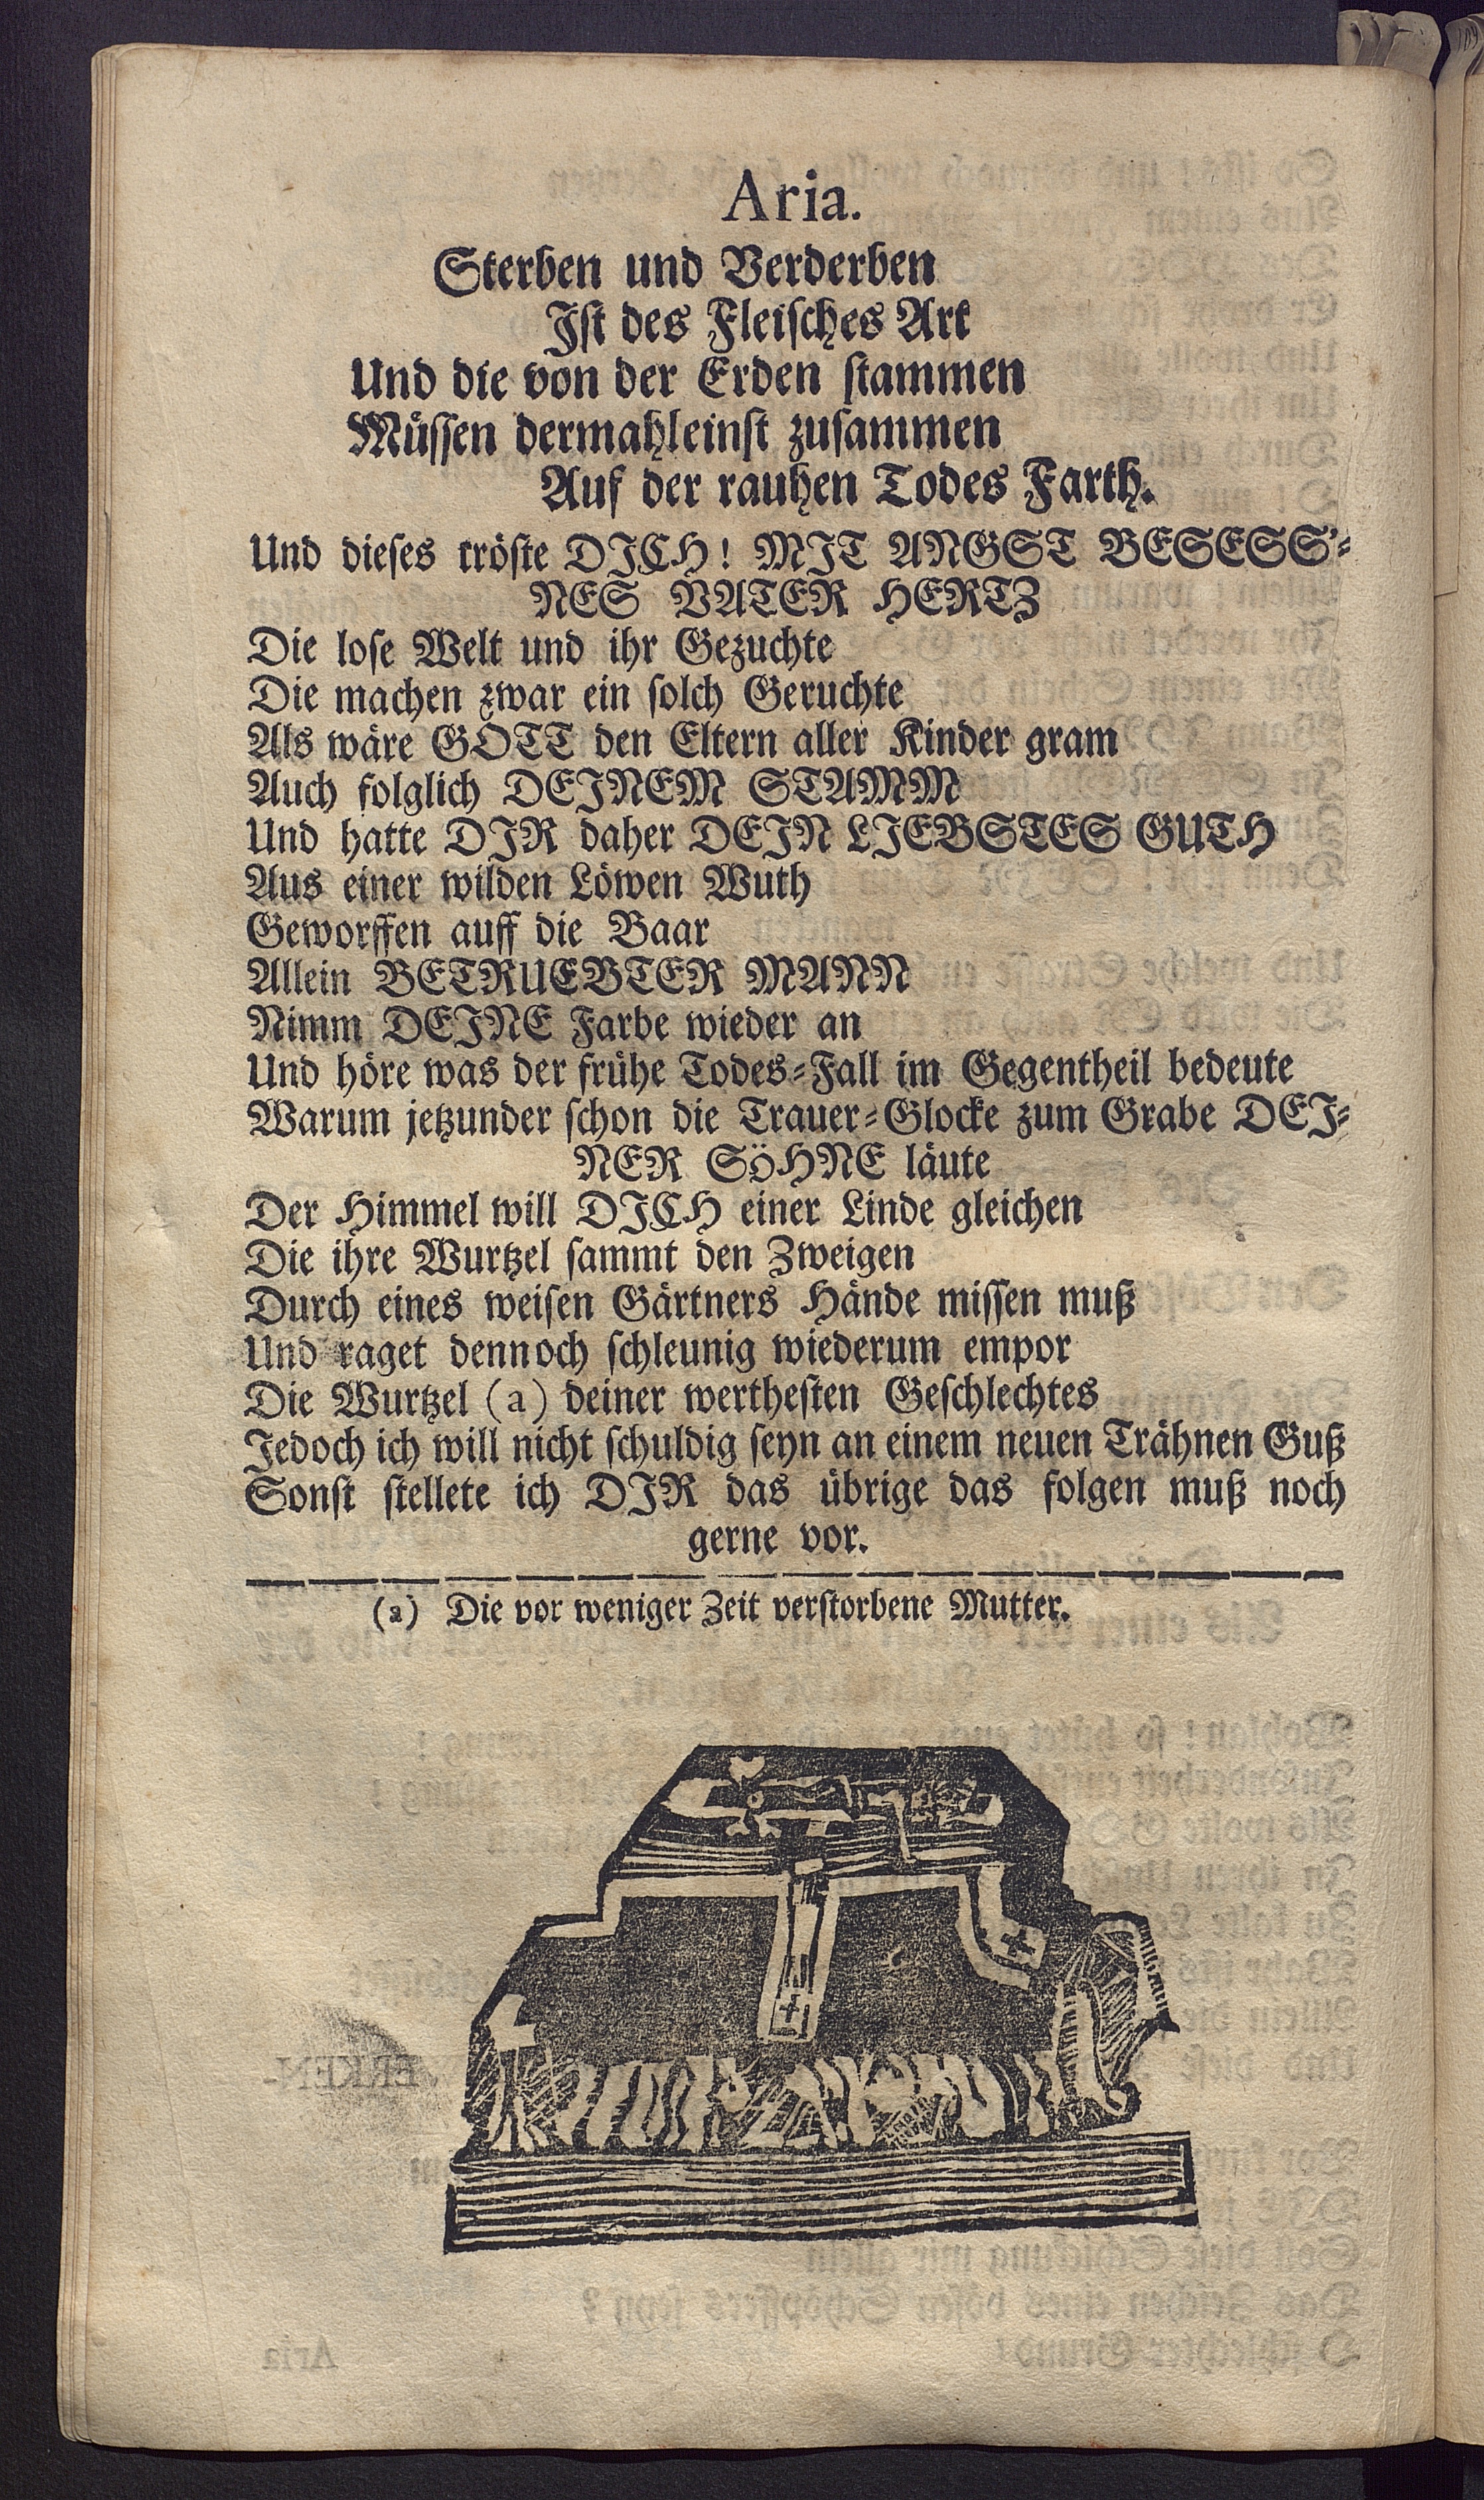 Aria.
Sterben und Verderben
Jst des Fleisches Art
Und die von der Erden stammen
Müssen dermahleinst zusammen
Auf der rauhen Todes Farth.
Und dieses tröste DJCH! MJT ANGST BESESS'-
NES VATER HERTZ
Die lose Welt und ihr Gezuchte
Die machen zwar ein solch Geruchte
Als wäre GOTT den Eltern aller Kinder gram
Auch folglich DEJNEM STAMM
Und hatte DJR daher DEJN LJEBSTES GUTH
Aus einer wilden Löwen Wuth
Geworffen auff die Baar
Allein BETRUEBTER MANN
Nimm DEJNE Farbe wieder an
Und höre was der frühe Todes-Fall im Gegentheil bedeute
Warum jetzunder schon die Trauer-Glocke zum Grabe DEJ-
NER SÖHNE läute
Der Himmel will DJCH einer Linde gleichen
Die ihre Wurtzel sammt den Zweigen
Durch eines weisen Gärtners Hände missen muß
Und raget dennoch schleunig wiederum empor
Die Wurtzel (a) deiner werthesten Geschlechtes
Jedoch ich will nicht schuldig seyn an einem neuen Trähnen Guß
Sonst stellete ich DJR das übrige das folgen muß noch
gerne vor.
(a) Die vor weniger Zeit verstorbene Mutter.